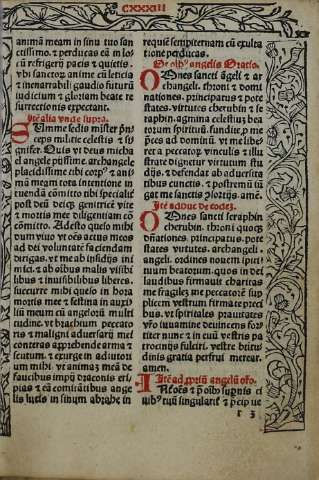 CXXXIII
animā meam in sinu tuo san
ctissimo. ⁊ perducas eā in lo⸗
cū refrigerij pacis ⁊ quietis.
vbi sanctoꝝ anime cū leticia
⁊ inenarrabili gaudio futurū
iudicium ⁊ gloriam beate re
surrectionis expectant.
Itē alia vnde supra.
Summe sedis mister prī⸗
ceps militie celestis ⁊ si
gnifer. Quis vt deus micha
el angele pijssime. archangele
placidissime tibi corpꝰ ⁊ ani⸗
mam meam tota intentione in
emendā cōmitto tibi speciali⸗
post deū deiqꝫ genitricē vite
⁊ mortis mee diligentiam cō
cōmitto. Adesto queso mihi
dum viuo vt oēs actus meos
ad dei volūtatē faciendam
dirigas. vt me ab insidijs ini
mici. ⁊ ab oibus malis visibi
libus ⁊ inuisibilibus liberes.
succurre mihi queso in hora
mortis mee ⁊ festina in auxi⸗
liū meum cū angeloꝝ multi
tudine. vt thachrum peccato
ris ⁊ maligni aduersarij mei
conteras apprehende arma ⁊
scutum. ⁊ exurge in adiutori
um mihi. vt animaꝫ meā de
faucibus impij draconis eri⸗
pias ⁊ eā comitātibus ange
lis lucis in sinum abrahe in
requiē sempiternam cū exulta
tione perducas.
De oībꝰ angelis Oratio.
OMnes sancti āgeli ⁊ ar
changeli. throni ⁊ domi
nationes. principatus ⁊ pote
states. virtutes cherubin ⁊ se
raphin. agmina celestiuꝫ beaː
torum spirituū. fundite p̄ me
preces ad dominū vt me libe
ret a peccatoꝝ vinculis ⁊ illu
strare dignetur virtutum stu
dijs. ⁊ defendat ab aduersita
tibus cunctis. ⁊ postremū iū
gat me sanctis glorijs. amē.
Itē aduuc de eodeꝫ.
OMnes sancti seraphin
cherubin. throni quoqꝫ
dn̄ationes. principatus. pote
states virtutes. archangeli.
angeli. ordines nouem spiri⸗
tuum beatorum. quos in dei
laudibus firmauit charitas
me fragileꝫ me peccatorē sup
plicem vestrum firma te preci
bus. vt spirituales prauitates
vr̄o iuuamine deuincens for⸗
titer nunc ⁊ in euū vestris pa
trocinijs fulciri. vestre beitu⸗
dinis gratia perfrui merear.
amen.
Itē ad ꝓpriū angelū oro.
ALoēs ⁊ p̄ oībꝰ supnis ci
uibꝰ ꝛū singularit̄ ⁊ p̄cipue
r 3